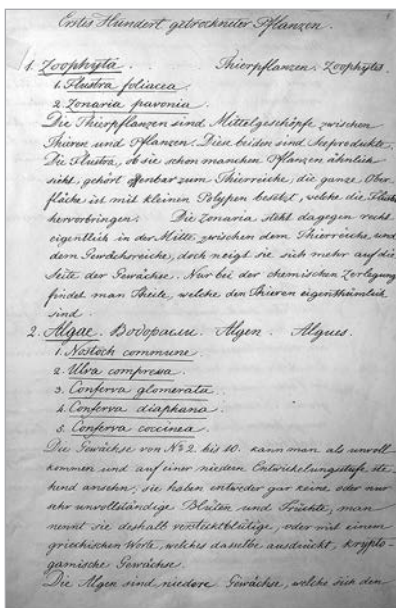 Erstes Hundert getrockneter Pflanzen.
1. Zoophyta. Thierpflanzen. Zoophytes.
1. Flustra foliacea
2. Zonaria pavonia.
Die Thierpflanzen sind Mittelgeschöpfe zwischen
Thieren und Pflanzen. Diese beiden sind Seeprodukte.
Die Flustra, ob sie schon manchen Pflanzen ähnlich
sieht, gehört offenbar zum Thierreiche, die ganze Ober
fläche ist mit kleinen Polypen besetzt, welche die Flustra
hervorbringen. Die Zonaria steht dagegen recht
eigentlich in der Mitte zwischen dem Thierreiche und
dem Gewächsreiche, doch neigt sie sich mehr auf die
Seite der Gewächse. Nur bei der chemischen Zerlegung
findet man Theile, welche den Thieren eigenthümlich
sind.
2. Algae. Водоросли. Algen. Algues.
1. Nostoch commune.
2. Ulva compressa.
3. Conferva glomerata.
4. Conferva diaphana.
5. Conferva coccinea.
Die Gewächse von № 2 bis 10. kann man als unvoll
kommen und auf einer niedern Entwickelungsstufe ste-
hend ansehn; sie haben entweder gar keine oder nur
sehr unvollständige Blüten und Früchte, man
nennt sie deshalb verstecktblütige, oder mit einem
griechischen Worte, welches dasselbe ausdrückt, krypto-
gamische Gewächse.
Die Algen sind niedere Gewächse, welche sich den